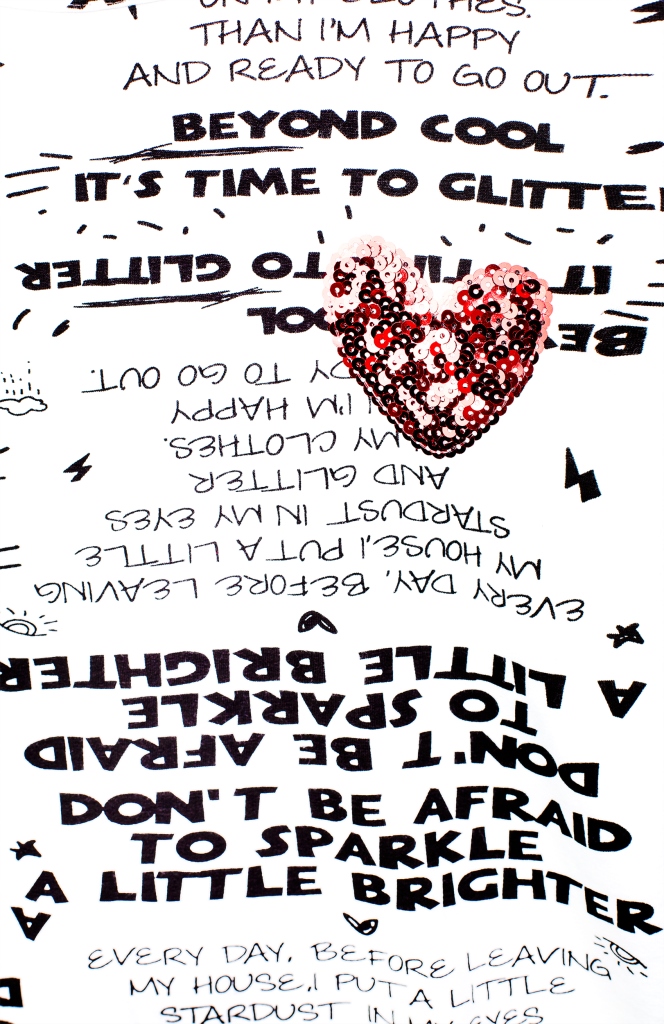 ON MY CLOTHES.
THAN I'M HAPPY
AND READY TO GO OUT.
BEYOND COOL
IT'S TIME TO GLITTE
IT TO GLITTER
BE OOL
DY TO GO OUT.
I'M HAPPY
MY CLOTHES.
AND GLITTER
STARDUST IN MY EYES
MY HOUSE,I PUT A LITTLE
EVERY DAY, BEFORE LEAVING
A LITTLE BRIGHTER
TO SPARKLE
DON'T BE AFRAID
DON'T BE AFRAID
TO SPARKLE
A LITTLE BRIGHTER
EVERY DAY, BEFORE LEAVING
MY HOUSE,I PUT A LITTLE
STARDUST IN MY EYES